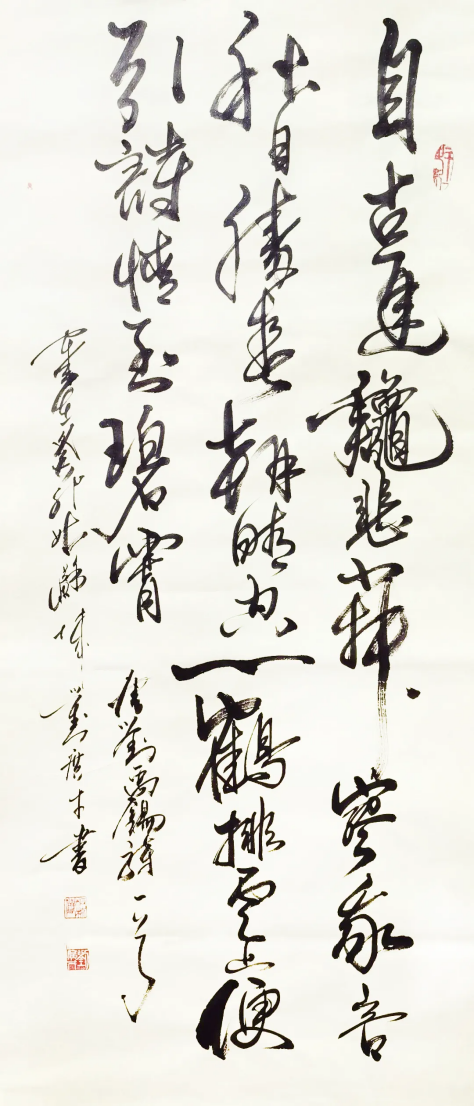 自古逢龝悲寂寥我言
秋日勝春朝晴空一鶴排雲上便
引詩情到碧霄
唐劉禹錫詩一首
歲在癸卯姑蘇城書